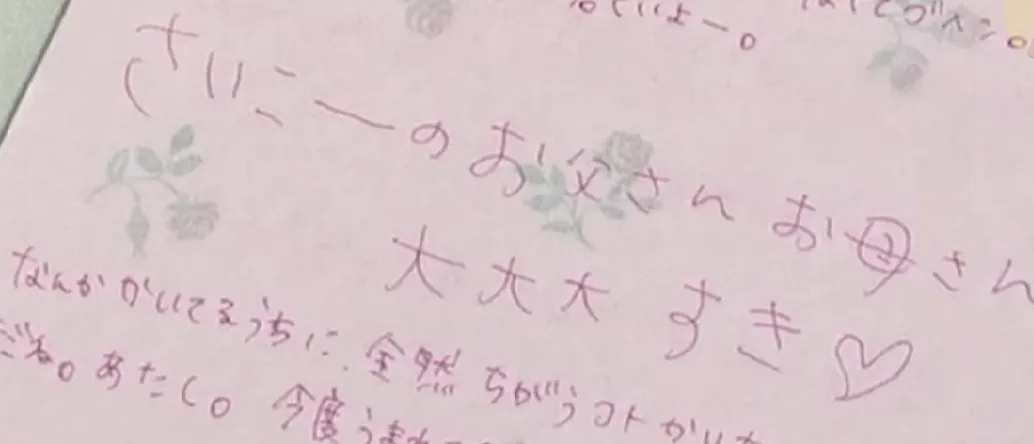 さいこーのお父さんお母さん
大大大すき♡
なんかかいてるうちに全然ちがうコトかいた
だね。あたし。今度うまれ